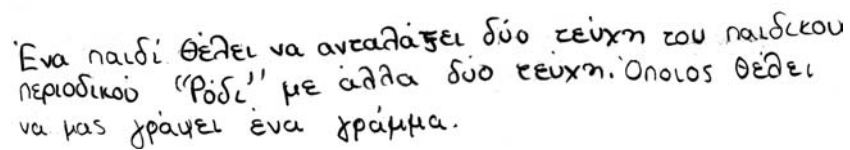 Ένα παιδί θέλει να ανταλάξει δύο τεύχη του παιδικου
περιοδικού "Ρόδι" με άλλα δύο τεύχη. Όποιος θέλει
να μας γράψει ένα γράμμα.